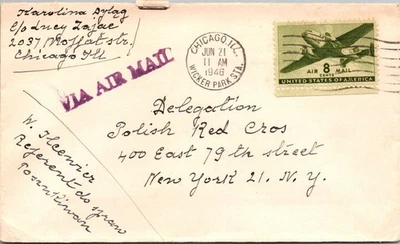 Karolina Dyląg
c/o dney Zając
2037 Moffat str.
Chicago Ill
VIA AIR MAIL
CHICAGO, ILL.
JUN 21
11 AM
1946
WICKER PARK STA.
AIR 8 MAIL
CENTS
UNITED STATES OF AMERICA
Delegation
Polish Red Cros
400 East 79th street
New York 21. N.Y.
W. Ilcewicz
Referent do spraw